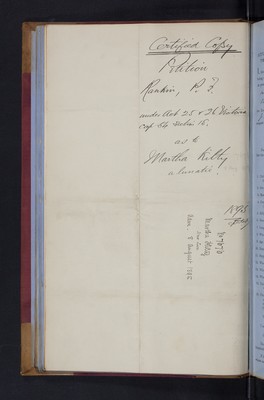 Certified Copy
Petition
Rankin, P. J.
under Act 25 & 26 Victoria
Cap 54 Section 15.
as to
Martha Kelly
a lunatic.
1895
Martha Kelly
8 August 1895